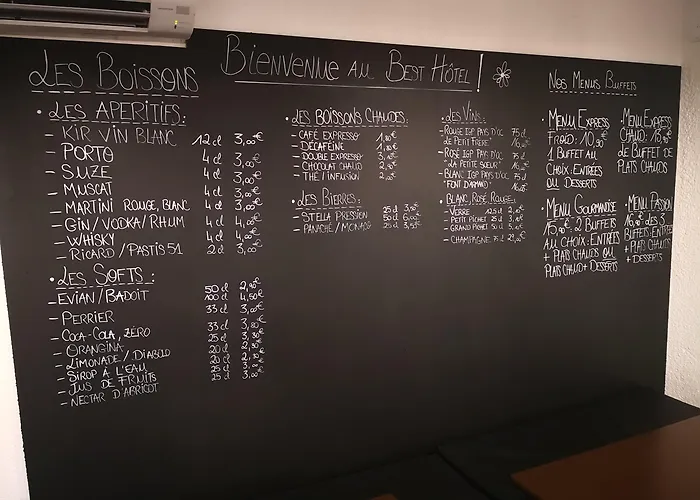 Bienvenue au Best Hôtel !
Les Boissons
• Les Aperitifs :
- Kir Vin Blanc 12 cl 3,00€
- Porto 4 cl 3,00€
- Suze 4 cl 3,00€
- Muscat 4 cl 3,00€
- Martini Rouge, Blanc 4 cl 3,00€
- Gin/Vodka/Rhum 4 cl 4,00€
- Whisky 4 cl 4,00€
- Ricard/Pastis 51 2 cl 3,00€
• Les Softs :
- Evian/Badoit 50 cl 2,90€
100 cl 4,50€
- Perrier 33 cl 3,00€
- Coca-Cola, Zéro 33 cl
- Orangina 25 cl
- Limonade/Diabolo 20 cl
- Sirop à l'eau 20 cl
- Jus de Fruits 25 cl 3,00€
- Nectar d'abricot 25 cl 3,00€
• Les Boissons Chaudes :
- Café Expresso
- Décaféiné
- Double Expresso
- Chocolat Chaud
- Thé / Infusion
• Les Bieres :
- Stella Pression 25 cl
50 cl
- Panaché/Monaco 25 cl
• Les Vins :
- Rouge IGP Pays d'Oc 75 cl
"Le Petit Frère"
- Rosé IGP Pays d'Oc 75 cl
"La Petite Soeur"
- Blanc IGP Pays d'Oc 75 cl
• Blanc, Rosé, Rouge :
- Verre 12.5 cl
- Petit Pichet 25 cl
- Grand Pichet 50 cl
- Champagne 75 cl
Nos Menus Buffets
• Menu Express
Froid : 10,90€
1 Buffet au
choix : Entrées
ou Desserts
• Menu Express
Chaud : 13,90€
Le Buffet de
Plats Chauds
• Menu Gourmandise
15,90€ 2 Buffets
au choix : Entrées
+ Plats Chauds ou
Plats Chaud + Desserts
• Menu Passion
Les 3
Buffets : Entrées
+ Plats Chauds
+ Desserts